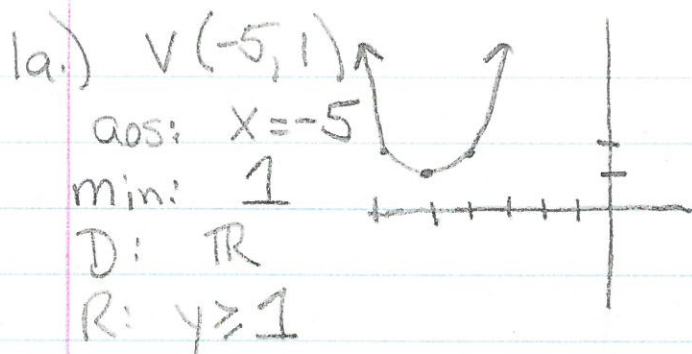 1a.) V(-5, 1)
aos: x=-5
min: 1
D: ℝ
R: y≥1